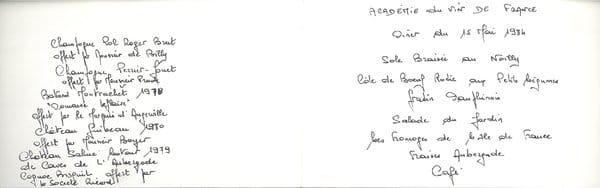 Champagne Pol Roger Brut
offert par Monsieur de Billy
Champagne Perrier-Jouet
offert par Monsieur
Batard Montrachet 1978
"Domaine Leflaive"
offert par le Marquis d'Angerville
Château 1980
offert par Monsieur Boyer
Château 1979
des Caves de L'Aubergade
Cognac Bisquit offert par
la Société Ricard
ACADÉMIE du VIN DE FRANCE
Dîner du 15 Mai 1984
Sole Braisée au Noilly
Côte de Boeuf Rotie aux Petits Légumes
Gratin Dauphinois
Salade du Jardin
Les Fromages de L'Ile de France
Fraises Aubergade
Café